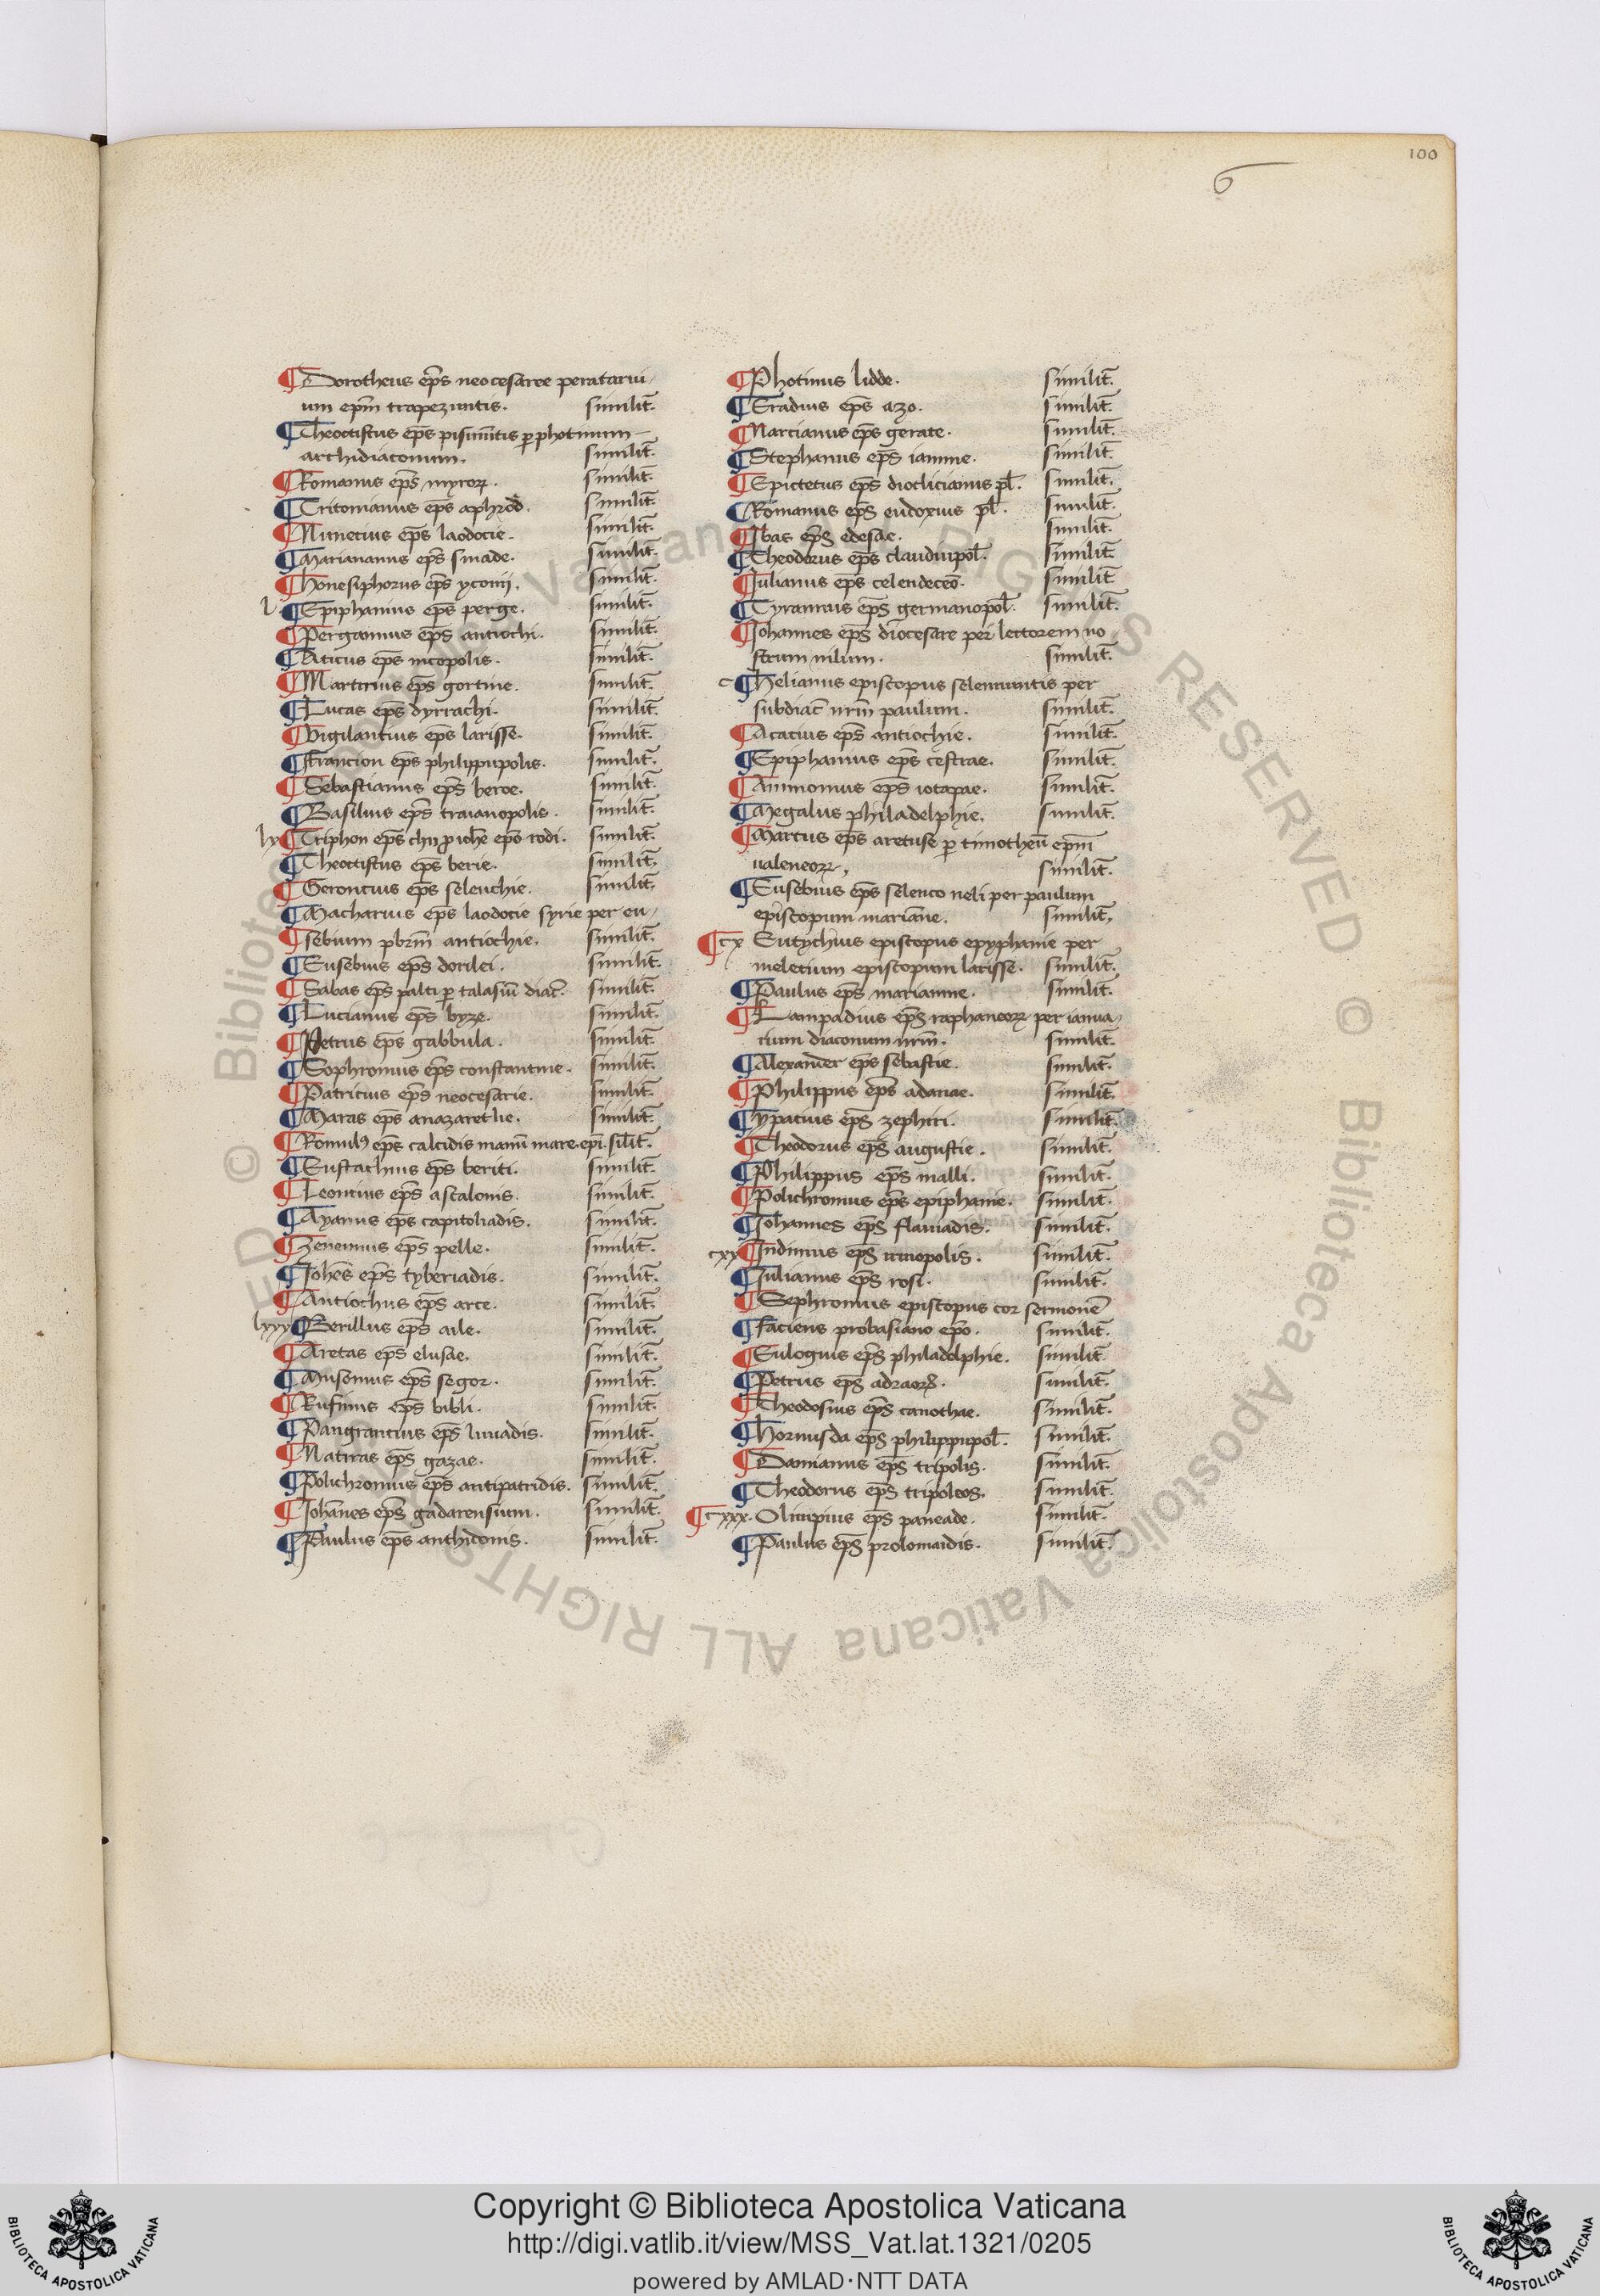 100
6
¶ Dorotheus ep̄s neocesaree per atarui/
um ep̄m trapezuntis. similit̄.
¶ Theoctistus ep̄s pisinūtis ꝑ photinum
archidiaconum. similit̄.
¶ Romanus ep̄s myroꝝ. similit̄.
¶ Critonianus ep̄s aphrod̄. similit̄.
¶ Nunecius ep̄s laodocie. similit̄.
¶ Mariananus ep̄s sinade. similit̄.
¶ Honesiphorus ep̄s yconij. similit̄.
l ¶ Epiphanius ep̄s perge. similit̄.
¶ Pergamius ep̄s antiochi. similit̄.
¶ Aticus ep̄s nicopolis. similit̄.
¶ Martirius ep̄s gortine. similit̄.
¶ Lucas ep̄s dyrrachi. similit̄.
¶ Vigilantius ep̄s larisse. similit̄.
¶ Francion ep̄s philippupolis. similit̄.
¶ Sebastianus ep̄s beroe. similit̄.
¶ Basilius ep̄s traianopolis. similit̄.
lx ¶ Triphon ep̄s chij ꝓ ioh̄e ep̄o rodi. similit̄.
¶ Theoctistus ep̄s berie. similit̄.
¶ Gerontius ep̄s seleuchie. similit̄.
¶ Macharius ep̄s laodocie syrie per eu/
¶ sebium pb̄rm antiochie. similit̄.
¶ Eusebius ep̄s dorilei. similit̄.
¶ Sabas ep̄s palti ꝑ talasiū diac̄. similit̄.
¶ Lucianus ep̄s byze. similit̄.
¶ Petrus ep̄s gabbula. similit̄.
¶ Sophronius ep̄s constantine. similit̄.
¶ Patritius ep̄s neocesarie. similit̄.
¶ Maras ep̄s anazarethe. similit̄.
¶ Romulꝰ ep̄s calcidis manū mare. ep̄i. sil̄it̄.
¶ Eustachius ep̄s beriti. similit̄.
¶ Leontius ep̄s ascalonis. similit̄.
¶ Ayanus ep̄s capitoliadis. similit̄.
¶ Zenennus ep̄s pelle. similit̄.
¶ Joh̄es ep̄s tyberiadis. similit̄.
¶ Antiochus ep̄s arce. similit̄.
lxxx ¶ Berillus ep̄s aile. similit̄.
¶ Aretas ep̄s elusae. similit̄.
¶ Musonius ep̄s segor. similit̄.
¶ Rufinus ep̄s bibli. similit̄.
¶ Pangrantius ep̄s liuiadis. similit̄.
¶ Natiras ep̄s gazae. similit̄.
¶ Polichronius ep̄s antipatridis. similit̄.
¶ Joh̄anes ep̄s gadarensium. similit̄.
¶ Paulus ep̄s anthidonis. similit̄.
¶ Photinus lidde. similit̄.
¶ Eradius ep̄s azo. similit̄.
¶ Marcianus ep̄s gerate. similit̄.
¶ Stephanus ep̄s iamnie. similit̄.
¶ Epictetus ep̄s dioclicianus pl̄. similit̄.
¶ Romanus ep̄s eudoxius pl̄. similit̄.
¶ Ibas ep̄s edesae. similit̄.
¶ Theodorus ep̄s claudiupol̄. similit̄
¶ Julianus ep̄s celendeceō. similit̄
¶ Tyrannus ep̄s germanopol̄. similit̄.
¶ Johannes ep̄s diocesare per lectorem no
strum nilum. similit̄.
c ¶ Helianus episcopus seleniuntis per
subdiac̄ nrm̄ paulum. similit̄.
¶ Acacius ep̄s antiochie. similit̄.
¶ Epiphanius ep̄s cestrae. similit̄.
¶ Ammonius ep̄s iotapae. similit̄.
¶ Megalus philadelphie. similit̄.
¶ Marcus ep̄s aretuse ꝑ timotheū ep̄m
ualeneoꝝ, similit̄.
¶ Eusebius ep̄s seleuco neli per paulum
episcopum mariāne. similit̄.
¶ cx Eutychius episcopus epyphanie per
meletium episcopum larisse. similit̄.
¶ Paulus ep̄s marianne. similit̄.
¶ Lampadius ep̄s raphaneoꝝ per ianua/
rium diaconum nrm̄. similit̄.
¶ Alexander ep̄s sebastie. similit̄.
¶ Philippus ep̄s adanae. similit̄.
¶ Ypatius ep̄s zephiri. similit̄.
¶ Theodorus ep̄s augustie. similit̄.
¶ Philippus ep̄s malli. similit̄.
¶ Polichromus ep̄s epiphanie. similit̄.
¶ Johannes ep̄s flauiadis. similit̄.
cxx ¶ Indimus ep̄s irinopolis. similit̄.
¶ Julianus ep̄s rosi. similit̄.
¶ Sephronius episcopus cor sermonē
¶ faciens probasiano ep̄o. similit̄.
¶ Eulogius ep̄s philadelphie. similit̄
¶ Petrus ep̄s adraorꝫ. similit̄.
¶ Theodosius ep̄s canothae. similit̄.
¶ Hormisda ep̄s philippupol̄. similit̄.
¶ Damianus ep̄s tripolis. similit̄.
¶ Theodorus ep̄s tripoleos. similit̄.
¶ cxxx. Olimpius ep̄s paneade. similit̄.
¶ Paulus ep̄s prolomaidis. similit̄.
© Biblioteca Apostolica Vaticana ALL RIGHTS RESERVED
Copyright © Biblioteca Apostolica Vaticana
http://digi.vatlib.it/view/MSS_Vat.lat.1321/0205
powered by AMLAD·NTT DATA
BIBLIOTECA APOSTOLICA VATICANA
BIBLIOTECA APOSTOLICA VATICANA